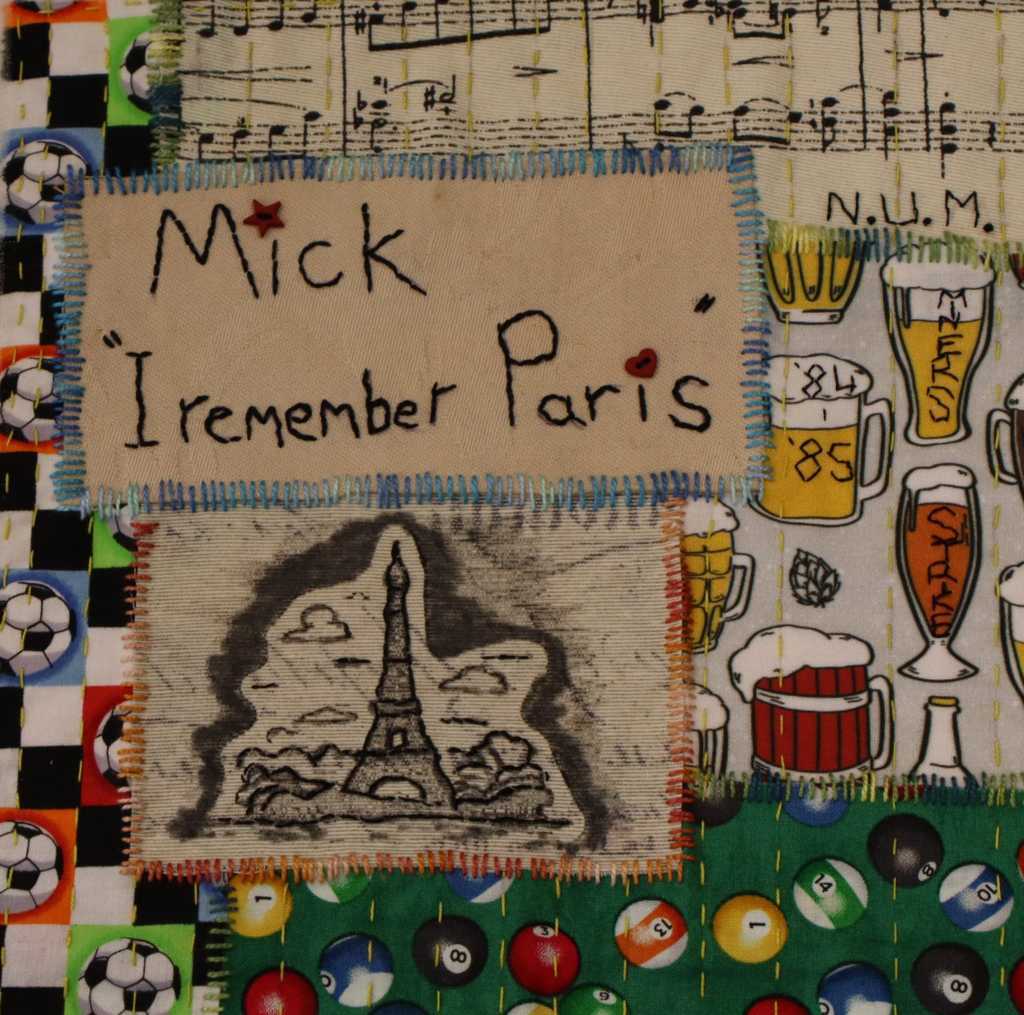 N.U.M.
Mick
"I remember Paris"
MINERS
'84
-
'85
STRIKE
14
8
10
1
13
1
8
3
8
6